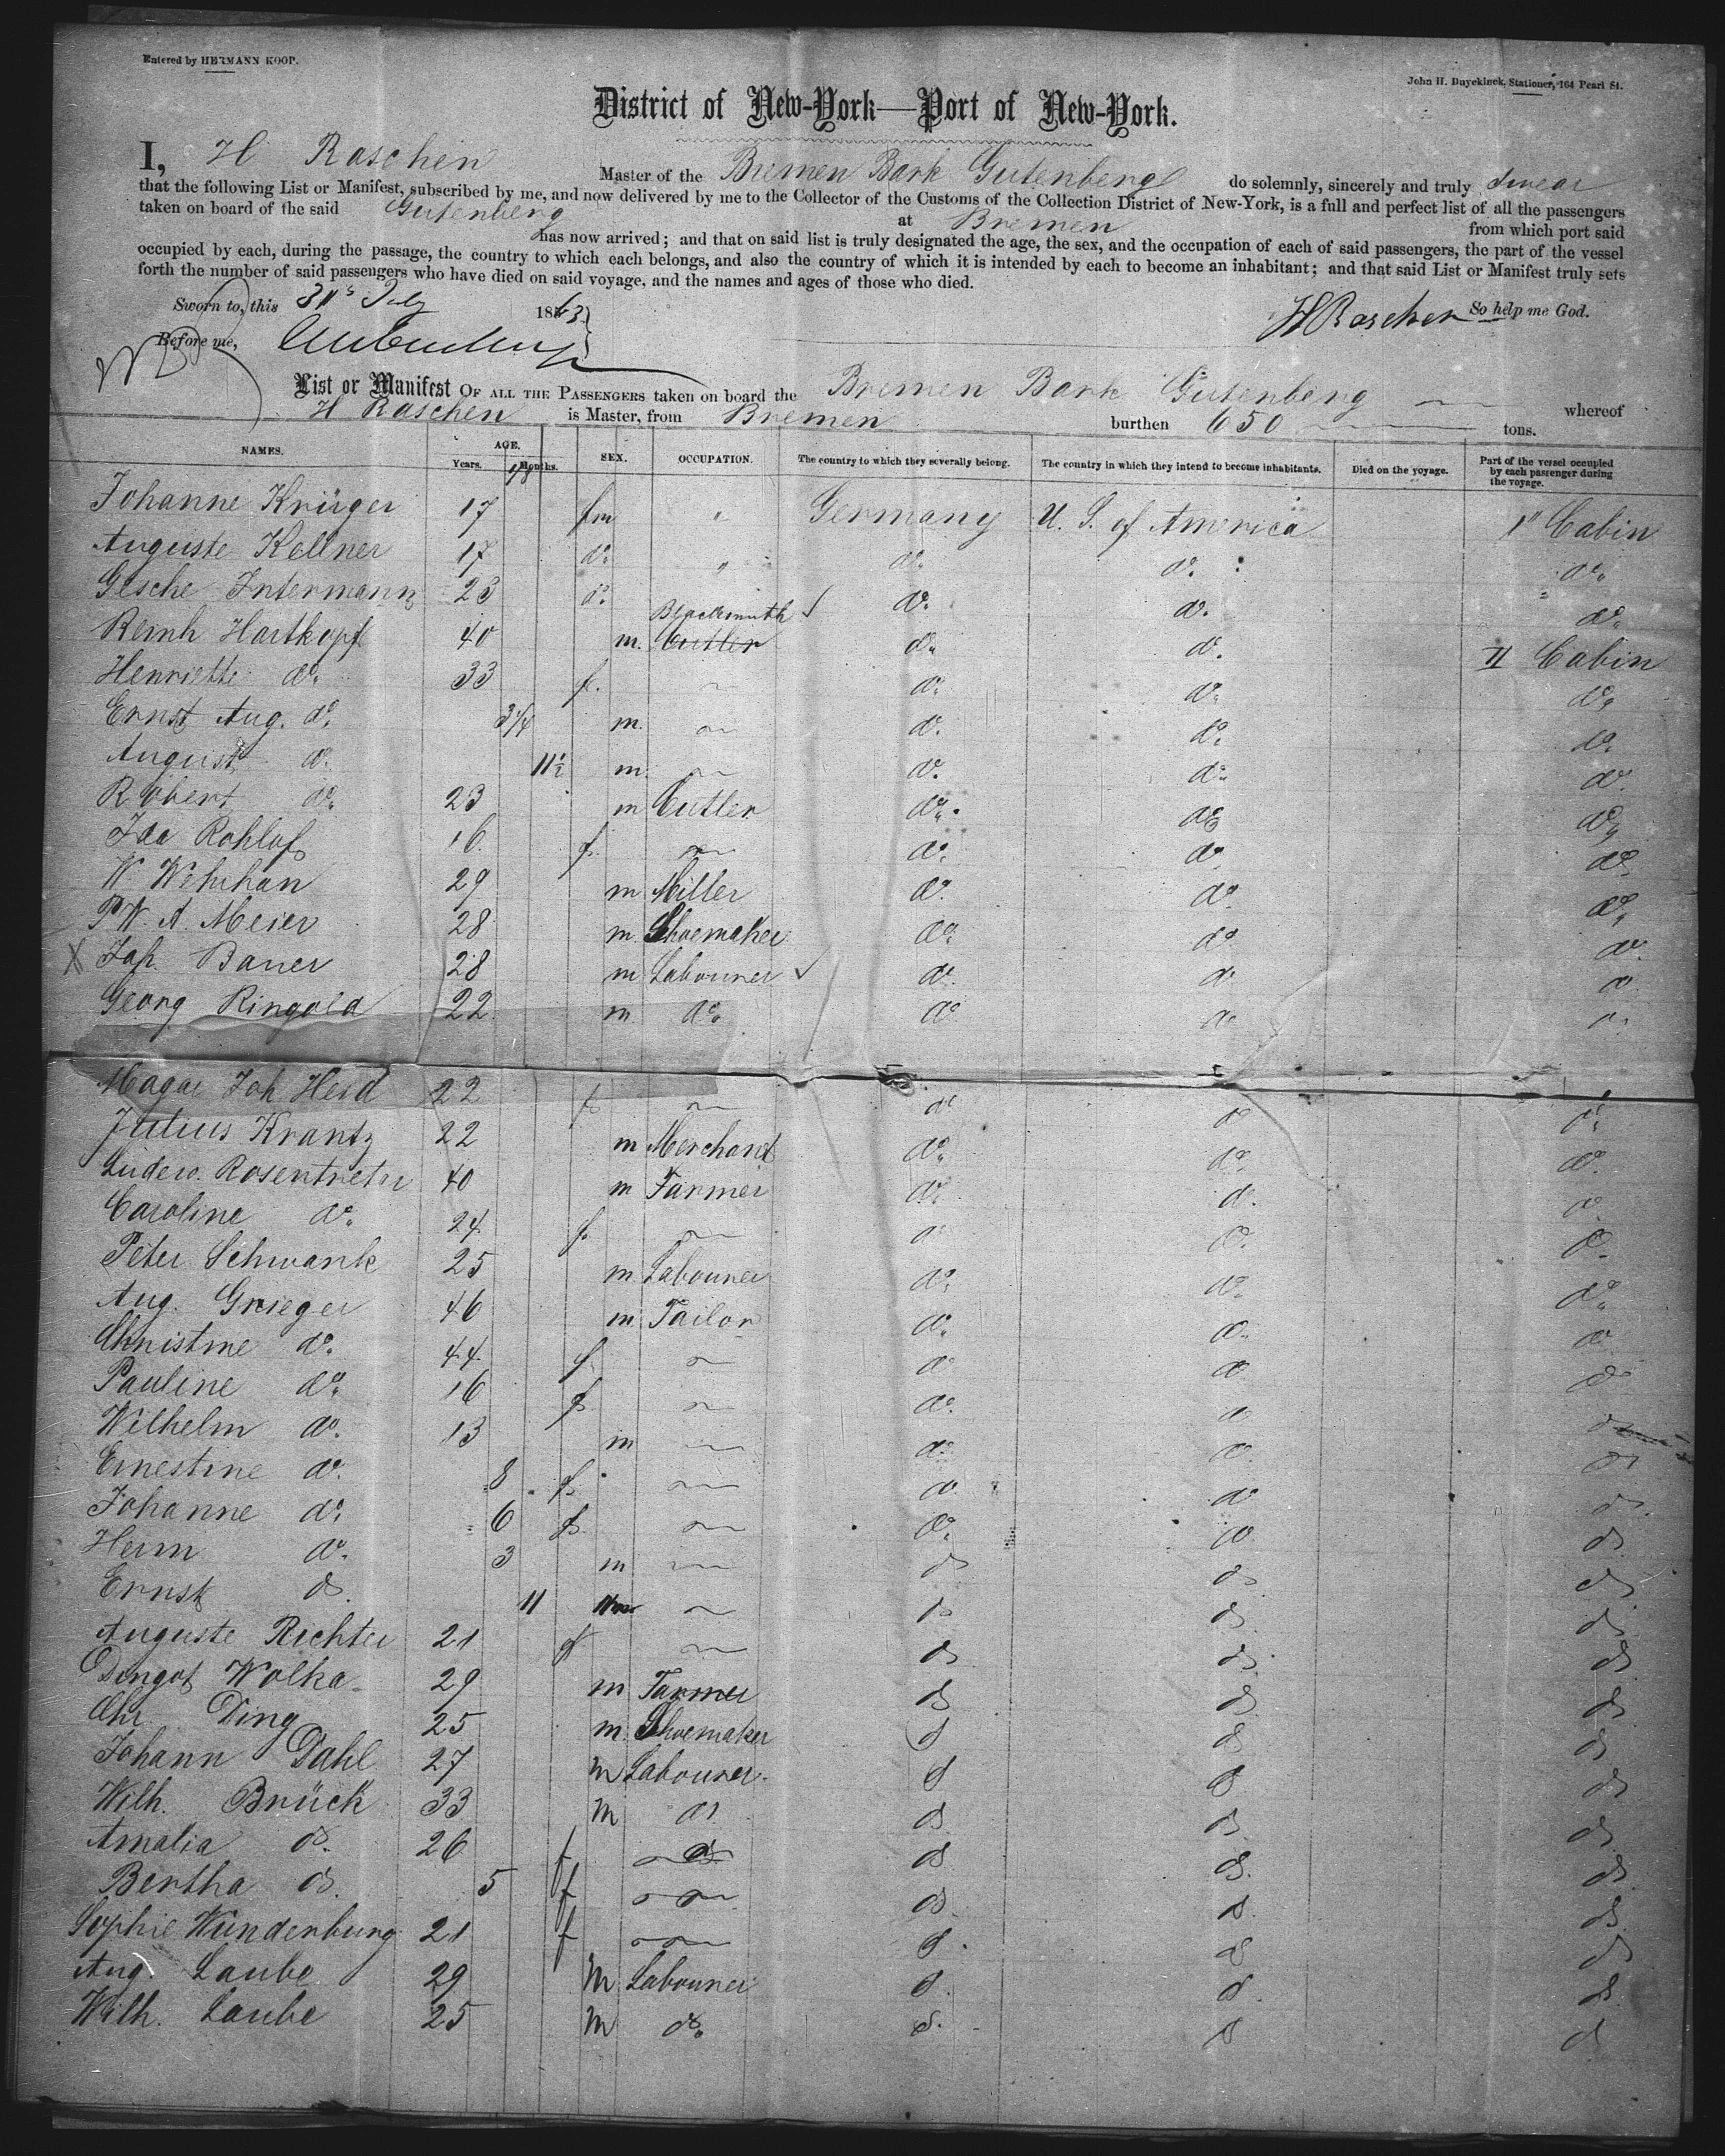 Entered by HERMANN KOOP.
John H. Duyckinck, Stationer, 164 Pearl St.
District of New-York—Port of New-York.
I, H Raschen Master of the Bremen Bark Gutenberg do solemnly, sincerely and truly swear
that the following List or Manifest, subscribed by me, and now delivered by me to the Collector of the Customs of the Collection District of New-York, is a full and perfect list of all the passengers
taken on board of the said Gutenberg at Bremen from which port said
Gutenberg has now arrived; and that on said list is truly designated the age, the sex, and the occupation of each of said passengers, the part of the vessel
occupied by each, during the passage, the country to which each belongs, and also the country of which it is intended by each to become an inhabitant; and that said List or Manifest truly sets
forth the number of said passengers who have died on said voyage, and the names and ages of those who died.
Sworn to, this 31s July 1863 So help me God.
Before me, H Raschen
List or Manifest OF ALL THE PASSENGERS taken on board the Bremen Bark Gutenberg whereof
H Raschen is Master, from Bremen burthen 650 tons.
NAMES. AGE. Years. Months. SEX. OCCUPATION. The country to which they severally belong. The country in which they intend to become inhabitants. Died on the voyage. Part of the vessel occupied by each passenger during the voyage.
Johanne Krüger 17 fm " Germany U. S. of America I" Cabin
Auguste Kellner 17 do " do do do
Gesche Intermann 23 do do do do
Reinh Hartkopf 40 m. Blacksmith Cutler do do II Cabin
Henriette do 33 f. do do do
Ernst Aug. do 3¼ m. do do do
August do 11½ m. do do do
Robert do 23 m Cutler do do do
Ida Rohlof 16 f. do do do
W Wehrhan 29 m Miller do do do
F W. A. Meier 28 m Shoemaker do do do
X Jos. Bauer 28 m Labourer do do do
Georg Ringold 22 m do do do do
Magar Joh Heid 22 f. do do do
Julius Krantz 22 m Merchant do do do
Ludew. Rosentreter 40 m Farmer do do do
Caroline do 24 f. do do do
Peter Schwank 25 m Labourer do do do
Aug. Grieger 46 m Tailor do do do
Christine do 44 f. do do do
Pauline do 16 f. do do do
Wilhelm do 13 m do do do
Ernestine do 8 f. do do do
Johanne do 6 f. do do do
Herm do 3 m do do do
Ernst do 11 m do do do
Auguste Richter 21 f do do do
Dingot Wolka 29 m Farmer do do do
Chr Ding 25 m Shoemaker do do do
Johann Dahl 27 m Labourer do do do
Wilh. Brück 33 m do do do do
Amalia do 26 f do do do
Bertha do 5 f do do do
Sophie Wundenburg 21 f do do do
Aug. Laube 29 m Labourer do do do
Wilh. Laube 25 m do do do do